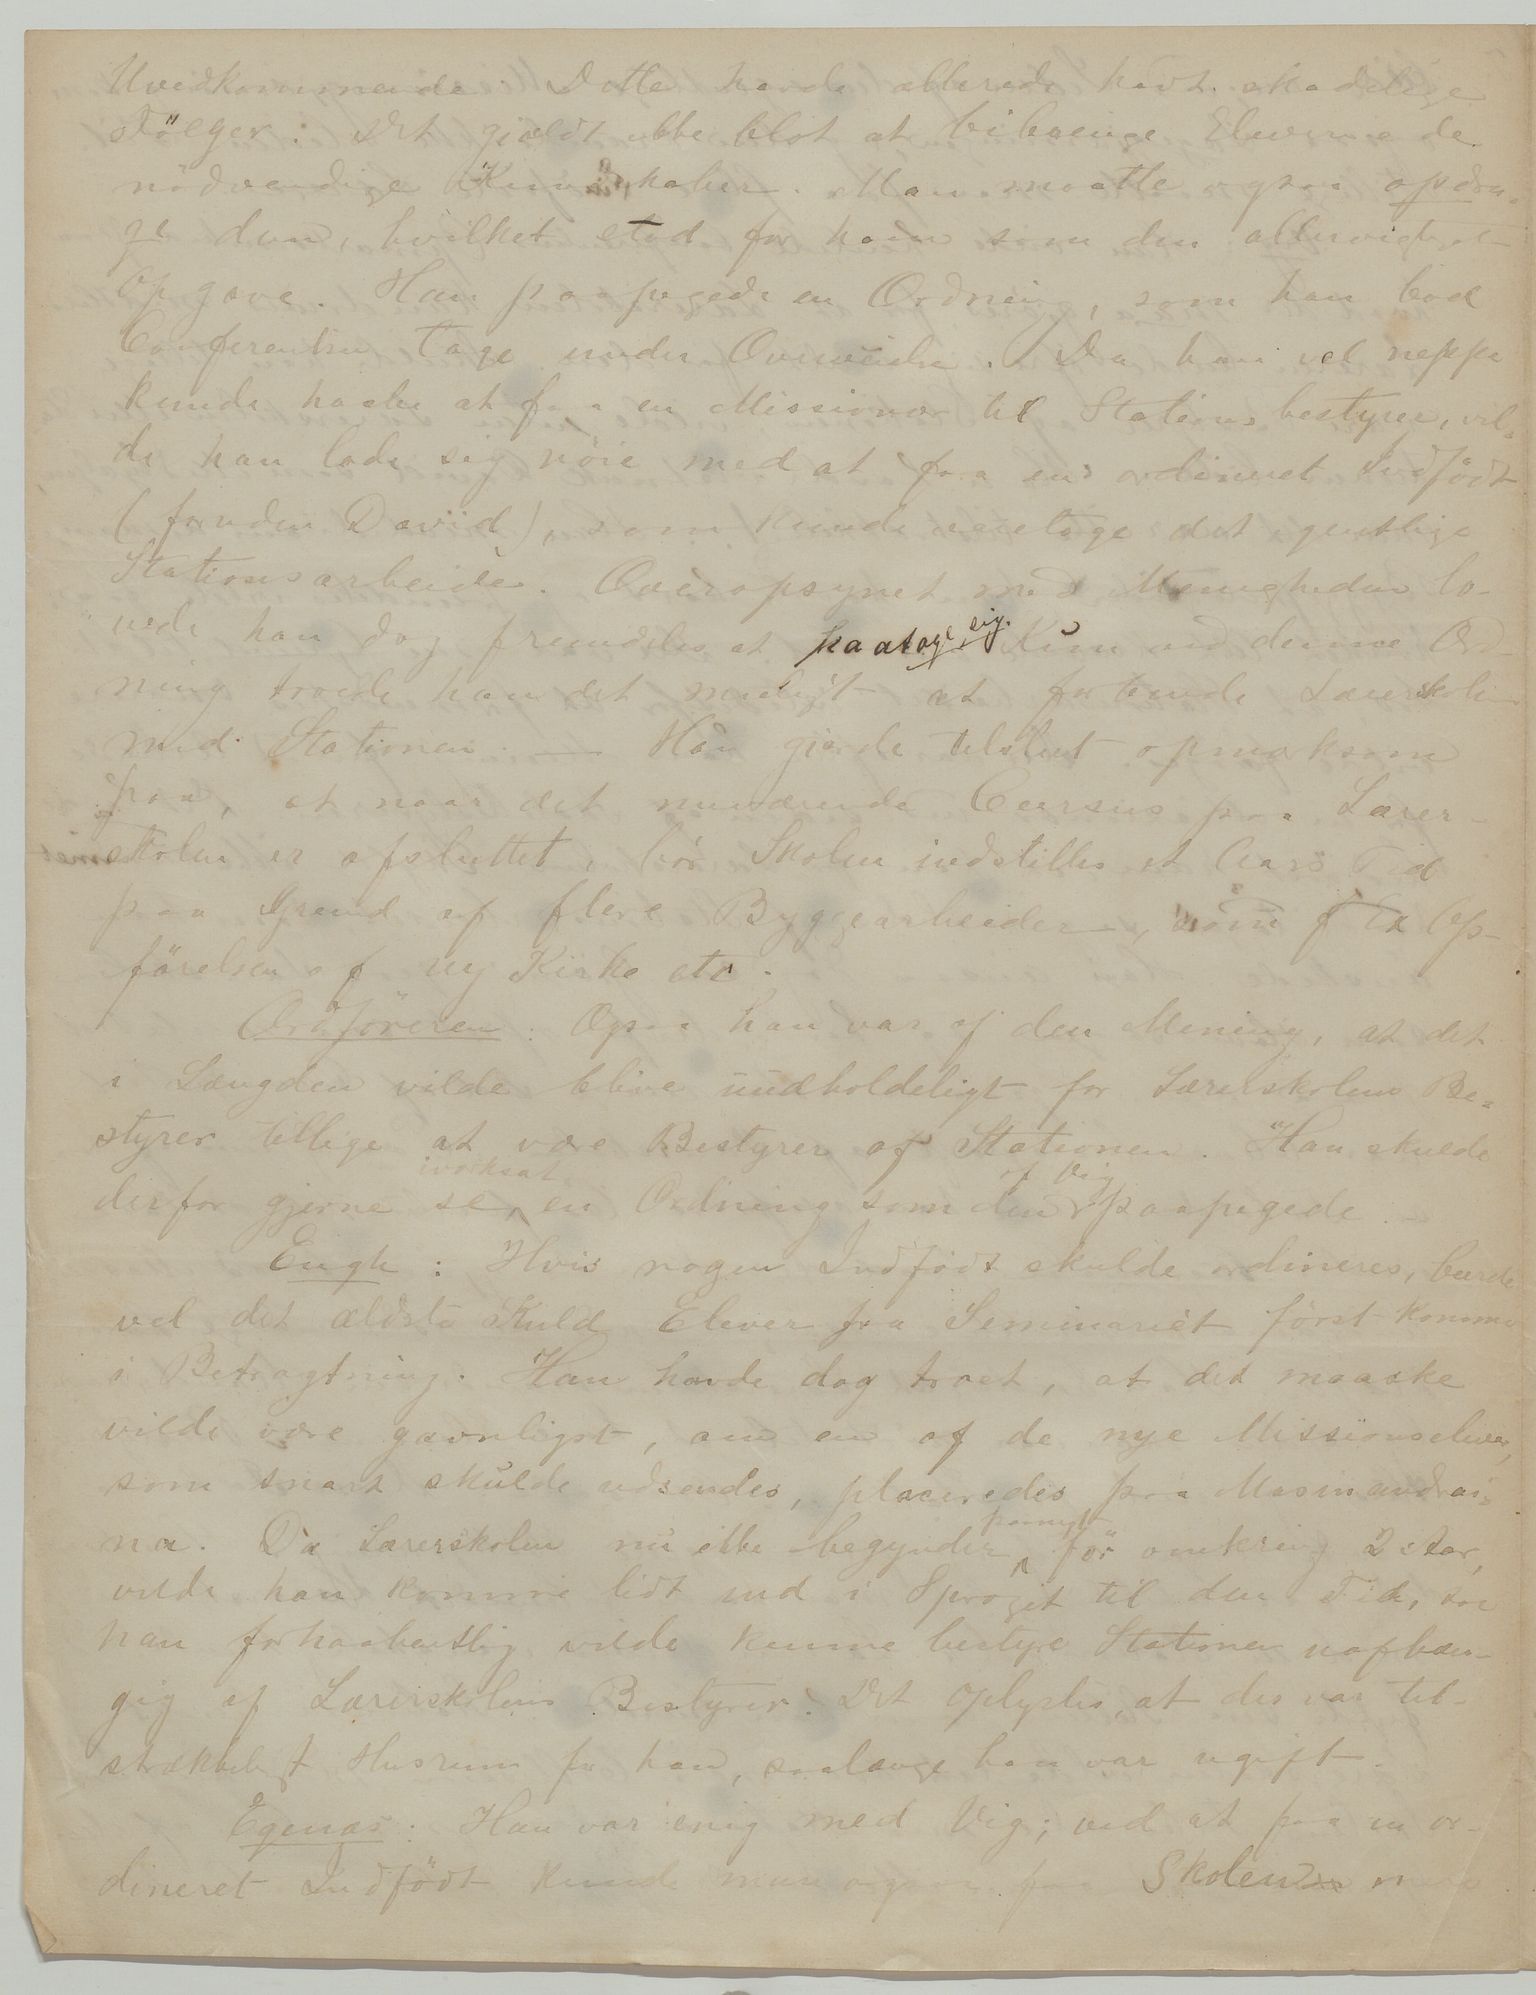 Uvedkommende. Dette havde allerede havt skadelige
Følger. Det gjældt ikke blot at bibringe Eleverne de
nödvendige Kundskaber. Man maatte ogsaa opdra-
ge dem, hvilket stod for ham som den allervigtigste
Opgave. Han paapegede en Ordning, som han bad
Conferentsen tage under Overveielse. Da han vel neppe
kunde haabe at faa en Missionær til Stationsbestyrer, vil-
de han lade sig nöie med at faa en ordineret Indfödt
(foruden David), som kunde varetage det egentlige
Stationsarbeide. Overopsynet med Menigheden lo-
vede han dog fremdeles at paatage sig. Kun ved denne Ord-
ning troede han det muligt at forbinde Lærerskolen
med Stationen. — Han gjorde tilslut opmerksom
paa, at naar det nuværende Cursus paa Lærer-
skolen er afsluttet, bör Skolen indstilles et Aars Tid
paa Grund af flere Byggearbeider, som f Ex Op-
förelsen af ny Kirke etc.
Ordföreren: Ogsaa han var af den Mening, at det
i Længden vilde blive uudholdeligt for Lærerskolens Be-
styrer tillige at være Bestyrer af Stationen. Han skulde
derfor gjerne se iverksat en Ordning som den af Vig paapegede.
Engh: Hvis nogen Indfödt skulde ordineres, burde
vel det ældste Kuld Elever fra Seminariet först komme
i Betragtning. Han havde dog troet, at det maaske
vilde være gavnligst, om en af de nye Missionselever,
som snart skulde udsendes, placeredes paa Masinandrai-
na. Da Lærerskolen nu ikke begynder paanyt för omkring 2 Aar,
vilde han komme lidt ind i Sproget til den Tid, saa
han forhaabentlig vilde kunne bestyre Stationen uafhæn-
gig af Lærerskolens Bestyrer. Det oplystes, at der var til-
strækkeligt Husrum for ham, saalænge han var ugift.
Egenæs: Han var enig med Vig; ved at faa en or-
dineret Indfödt kunde man ogsaa faa Skolen mere